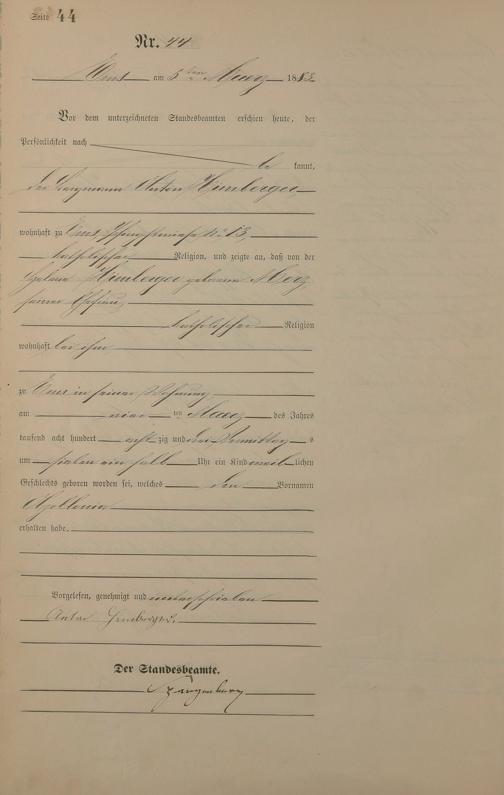 Seite 44
Nr. 44
Ems am 5ten Maerz 1883
Vor dem unterzeichneten Standesbeamten erschien heute, der
Persönlichkeit nach
be kannt,
der Bergmann Anton Himberger
wohnhaft zu Ems, No 13,
katholischer Religion, und zeigte an, daß von der
Himberger geborene
seiner Ehefrau,
katholischer Religion
wohnhaft bei ihm
zu Ems in seiner Wohnung
am ten Maerz des Jahres
tausend acht hundert acht zig und drei Vormittag s
um sieben ein halb Uhr ein Kind weib lichen
Geschlechts geboren worden sei, welches den Vornamen
Apollonia
erhalten habe.
Vorgelesen, genehmigt und unterschrieben
Anton Himberger.
Der Standesbeamte.
Spangenberg